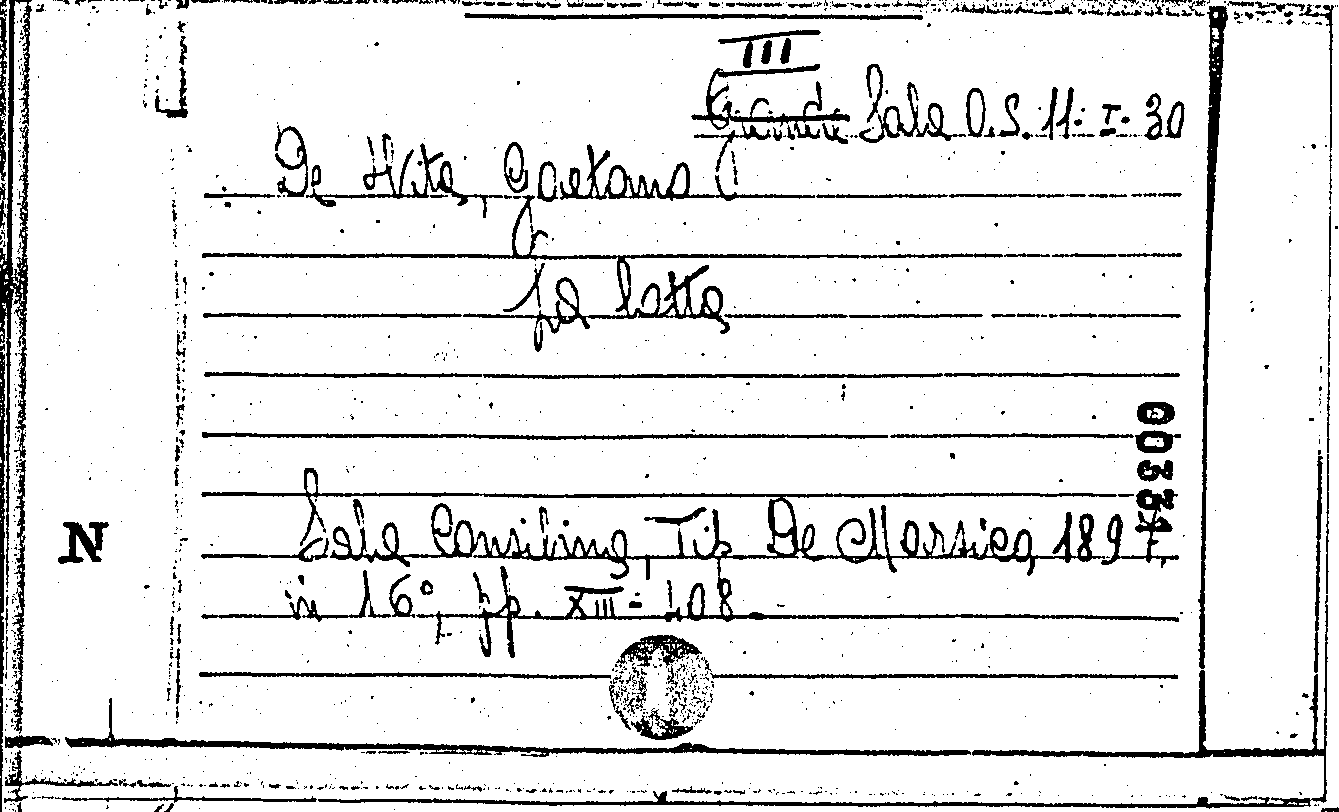 III
Grande Sala O.S. 11-I-30
De Vita, Gaetano
La lotta
00331
N
Sala Consilina, Tip. De Marsico, 1897
in 16°, pp. XIII-108.